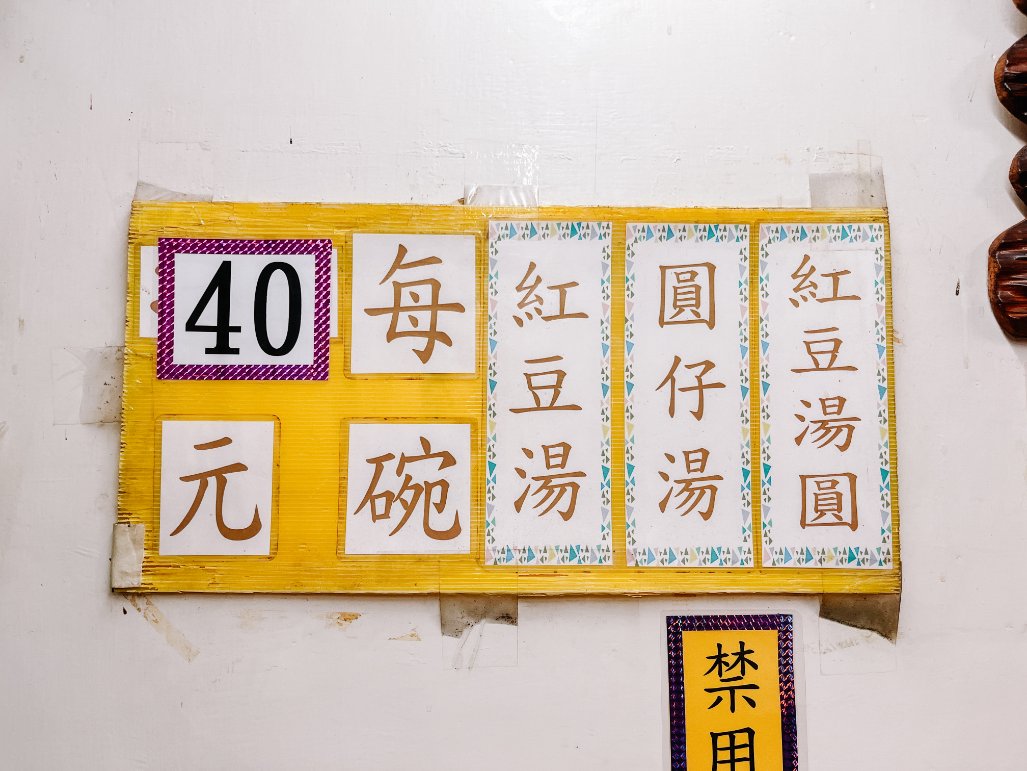 紅豆湯圓
圓仔湯
紅豆湯
每碗
40元
禁用